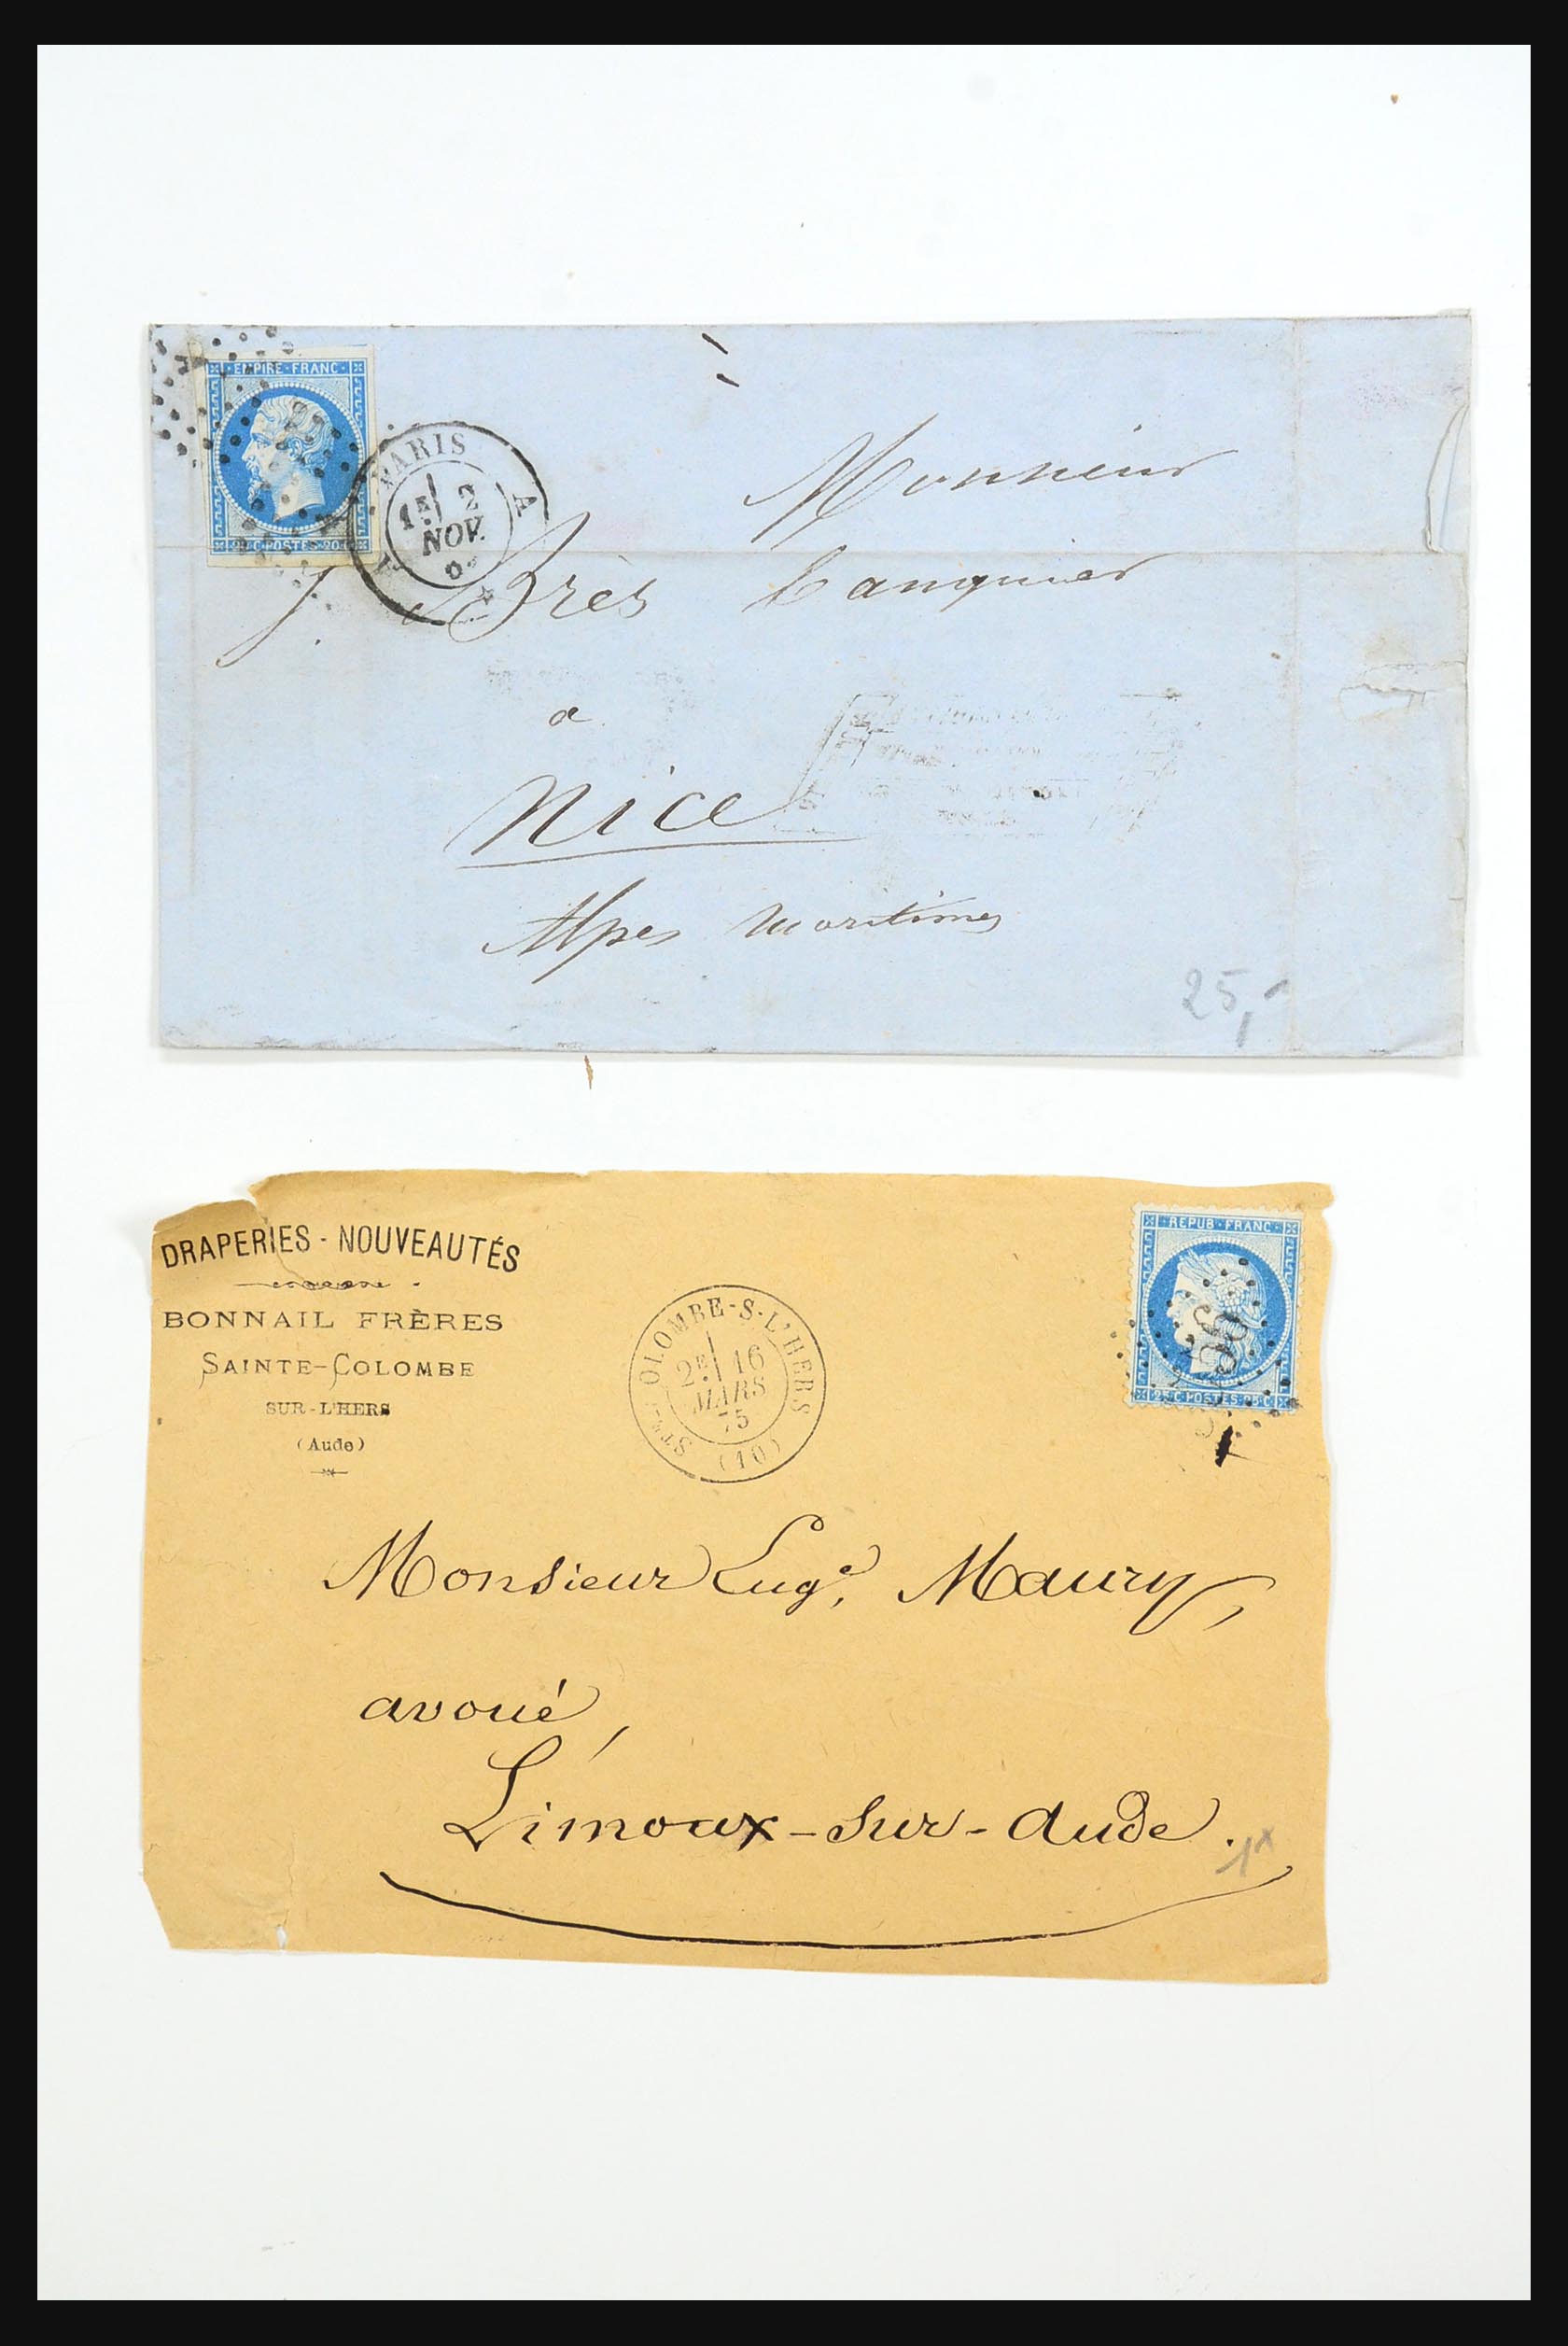 EMPIRE·FRANC·
20·C·POSTES·20·C
PARIS
A
1E 2
NOV.
Monsieur
J. Brès banquier
a
Nice
Alpes Maritimes
25,-
DRAPERIES - NOUVEAUTÉS
BONNAIL FRÈRES
SAINTE-COLOMBE
SUR-L'HERS
(Aude)
STE-COLOMBE-S-L'HERS
2E 16
MARS
75
(10)
REPUB·FRANC·
25·C·POSTES·25·C
Monsieur Euge. Maury,
avoué,
Limoux-sur-Aude.
1x